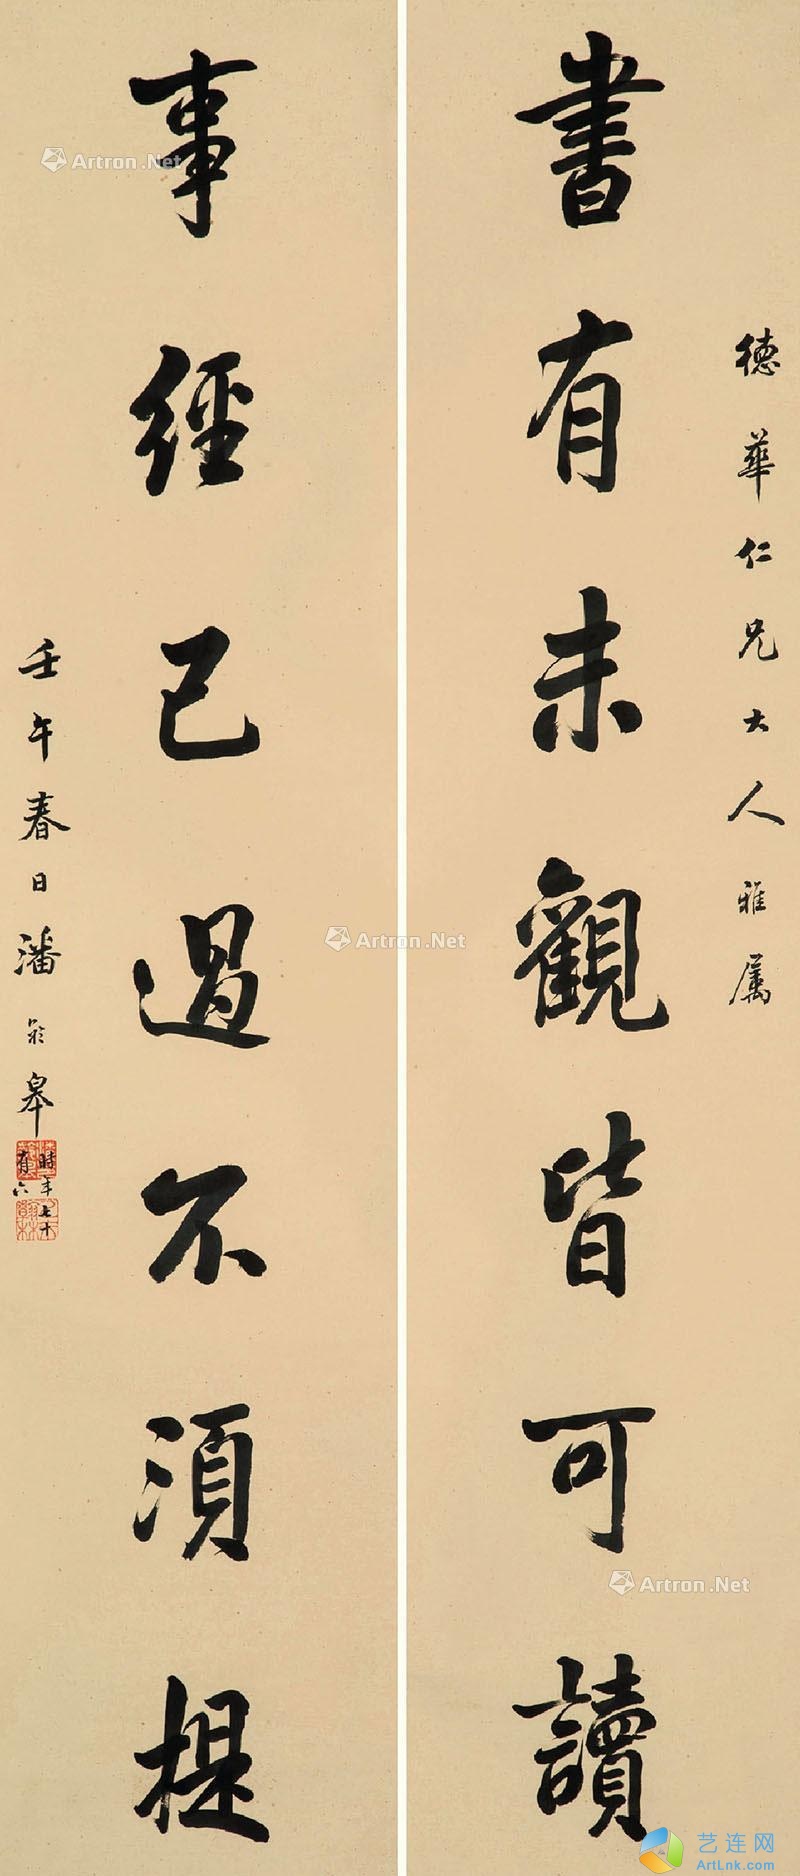 德華仁兄大人雅屬
書有未觀皆可讀
事經已過不湏提
壬午春日潘齡皋
時年七十
有六
Artron.Net
Artron.Net
Artron.Net
艺连网
ArtLnk.com